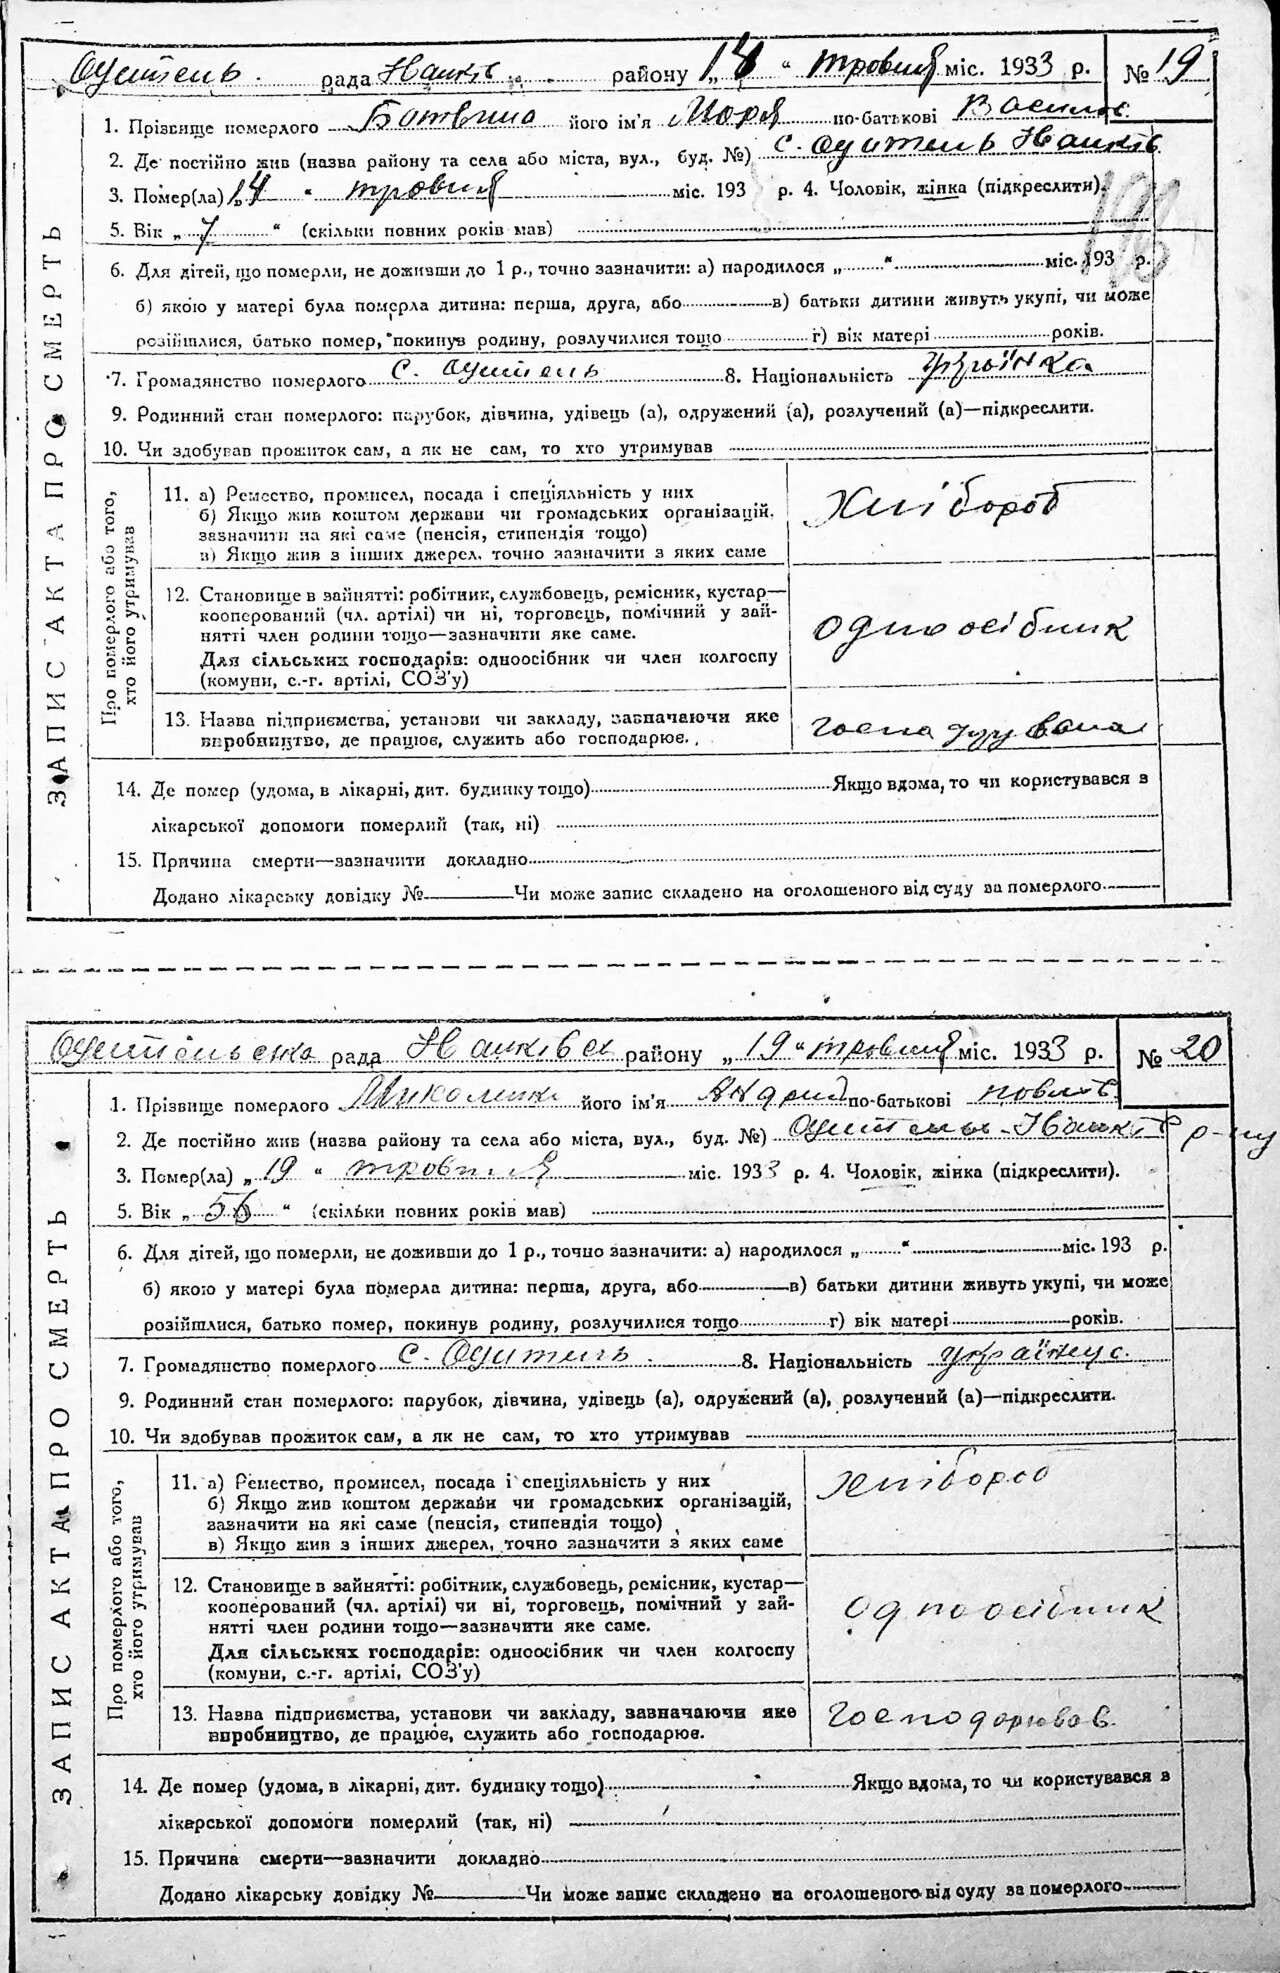 Одитель. рада Іванків. району „14 “ травня міс. 1933 р. № 19
1. Прізвище померлого Ботвина його ім'я Марія по-батькові Василів.
2. Де постійно жив (назва району та села або міста, вул., буд. №) с. Одитель Іванків.
3. Помер(ла) „14 “ травня міс. 193 р. 4. Чоловік, жінка (підкреслити).
5. Вік „ 7 “ (скільки повних років мав)
6. Для дітей, що померли, не доживши до 1 р., точно зазначити: а) народилося „ “ міс. 193 р.
б) якою у матері була померла дитина: перша, друга, або в) батьки дитини живуть укупі, чи може
розійшлися, батько помер, покинув родину, розлучилися тощо г) вік матері років.
7. Громадянство померлого с. Одитель 8. Національність
9. Родинний стан померлого: парубок, дівчина, удівець (а), одружений (а), розлучений (а)—підкреслити.
10. Чи здобував прожиток сам, а як не сам, то хто утримував
ЗАПИС АКТА ПРО СМЕРТЬ
Про померлого або того,
хто його утримував
11. а) Ремество, промисел, посада і спеціяльність у них
б) Якщо жив коштом держави чи громадських організацій,
зазначити на які саме (пенсія, стипендія тощо)
в) Якщо жив з інших джерел, точно зазначити з яких саме
Хлібороб
12. Становище в зайнятті: робітник, службовець, ремісник, кустар—
кооперований (чл. артілі) чи ні, торговець, помічний у зай-
нятті член родини тощо—зазначити яке саме.
Для сільських господарів: одноосібник чи член колгоспу
(комуни, с.-г. артілі, СОЗ'у)
одноосібник
13. Назва підприємства, установи чи закладу, зазначаючи яке
виробництво, де працює, служить або господарює.
14. Де помер (удома, в лікарні, дит. будинку тощо) Якщо вдома, то чи користувався з
лікарської допомоги померлий (так, ні)
15. Причина смерти—зазначити докладно
Додано лікарську довідку № Чи може запис складено на оголошеного від суду за померлого
Одительська рада Іванківск району „ 19 “ травня міс. 1933 р. № 20
1. Прізвище померлого його ім'я Андрій по-батькові Павлів.
2. Де постійно жив (назва району та села або міста, вул., буд. №) Одитель Іванків р-ну
3. Помер(ла) „ 19 “ травня міс. 1933 р. 4. Чоловік, жінка (підкреслити).
5. Вік „ 56 “ (скільки повних років мав)
6. Для дітей, що померли, не доживши до 1 р., точно зазначити: а) народилося „ “ міс. 193 р.
б) якою у матері була померла дитина: перша, друга, або в) батьки дитини живуть укупі, чи може
розійшлися, батько помер, покинув родину, розлучилися тощо г) вік матері років.
7. Громадянство померлого с. Одитель. 8. Національність
9. Родинний стан померлого: парубок, дівчина, удівець (а), одружений (а), розлучений (а)—підкреслити.
10. Чи здобував прожиток сам, а як не сам, то хто утримував
ЗАПИС АКТА ПРО СМЕРТЬ
Про померлого або того,
хто його утримував
11. а) Ремество, промисел, посада і спеціяльність у них
б) Якщо жив коштом держави чи громадських організацій,
зазначити на які саме (пенсія, стипендія тощо)
в) Якщо жив з інших джерел, точно зазначити з яких саме
хлібороб
12. Становище в зайнятті: робітник, службовець, ремісник, кустар—
кооперований (чл. артілі) чи ні, торговець, помічний у зай-
нятті член родини тощо—зазначити яке саме.
Для сільських господарів: одноосібник чи член колгоспу
(комуни, с.-г. артілі, СОЗ'у)
одноосібник
13. Назва підприємства, установи чи закладу, зазначаючи яке
виробництво, де працює, служить або господарює.
господарював
14. Де помер (удома, в лікарні, дит. будинку тощо) Якщо вдома, то чи користувався з
лікарської допомоги померлий (так, ні)
15. Причина смерти—зазначити докладно
Додано лікарську довідку № Чи може запис складено на оголошеного від суду за померлого